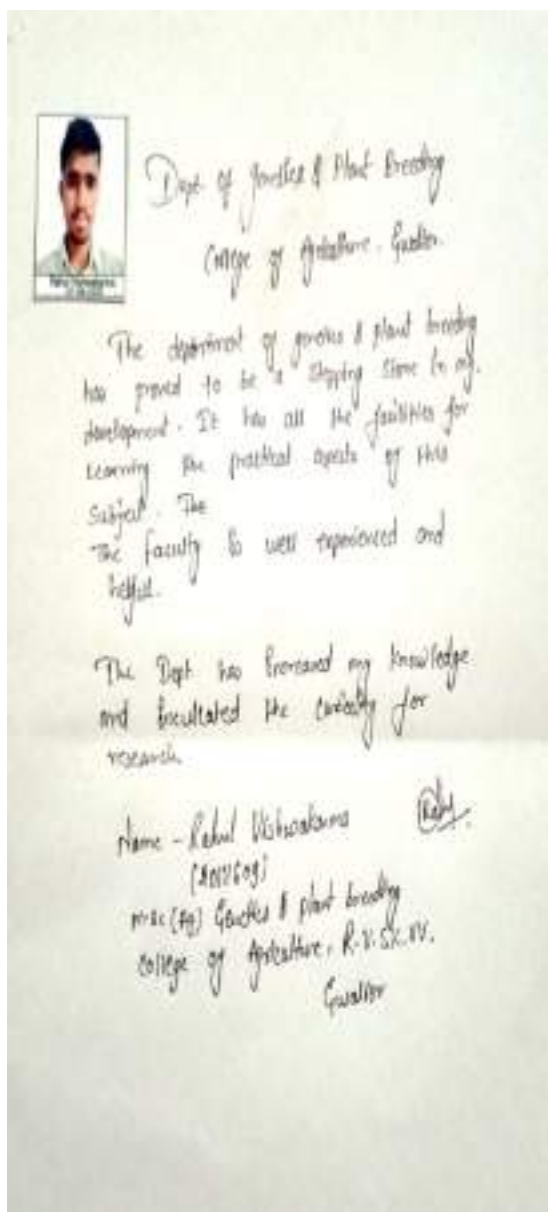 Dept of Genetics & Plant Breeding
College of Agriculture. Gwalior.
The department of genetics & plant breeding
has proved to be a stepping stone in my.
development. It has all the facilities for
Learning the practical aspects of this
Subject. The
The faculty is well experienced and
helpful.
The Dept has increased my knowledge
and inculcated the curiosity for
research.
Name - Rahul Vishwakarma
M.Sc (Ag) Genetics & plant breeding
College of Agriculture. R.V.S.K.V.V.
Gwalior
Rahul